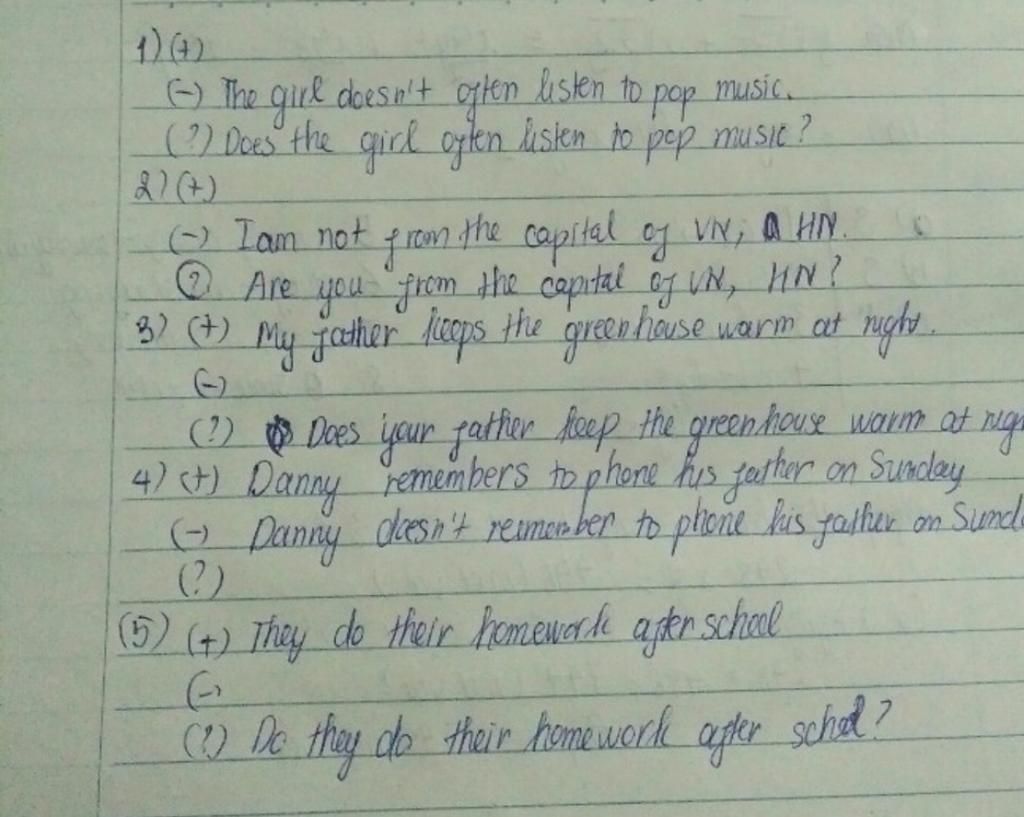 1) (+)
(-) The girl doesn't often listen to pop music.
(?) Does the girl often listen to pop music?
2) (+)
(-) I am not from the capital of VN, HN.
(?) Are you from the capital of VN, HN?
3) (+) My father keeps the greenhouse warm at night.
(-)
(?) Does your father keep the greenhouse warm at nigh
4) (+) Danny remembers to phone his father on Sunday
(-) Danny doesn't remember to phone his father on Sund
(?)
(5) (+) They do their homework after school
(-)
(?) Do they do their homework after school?